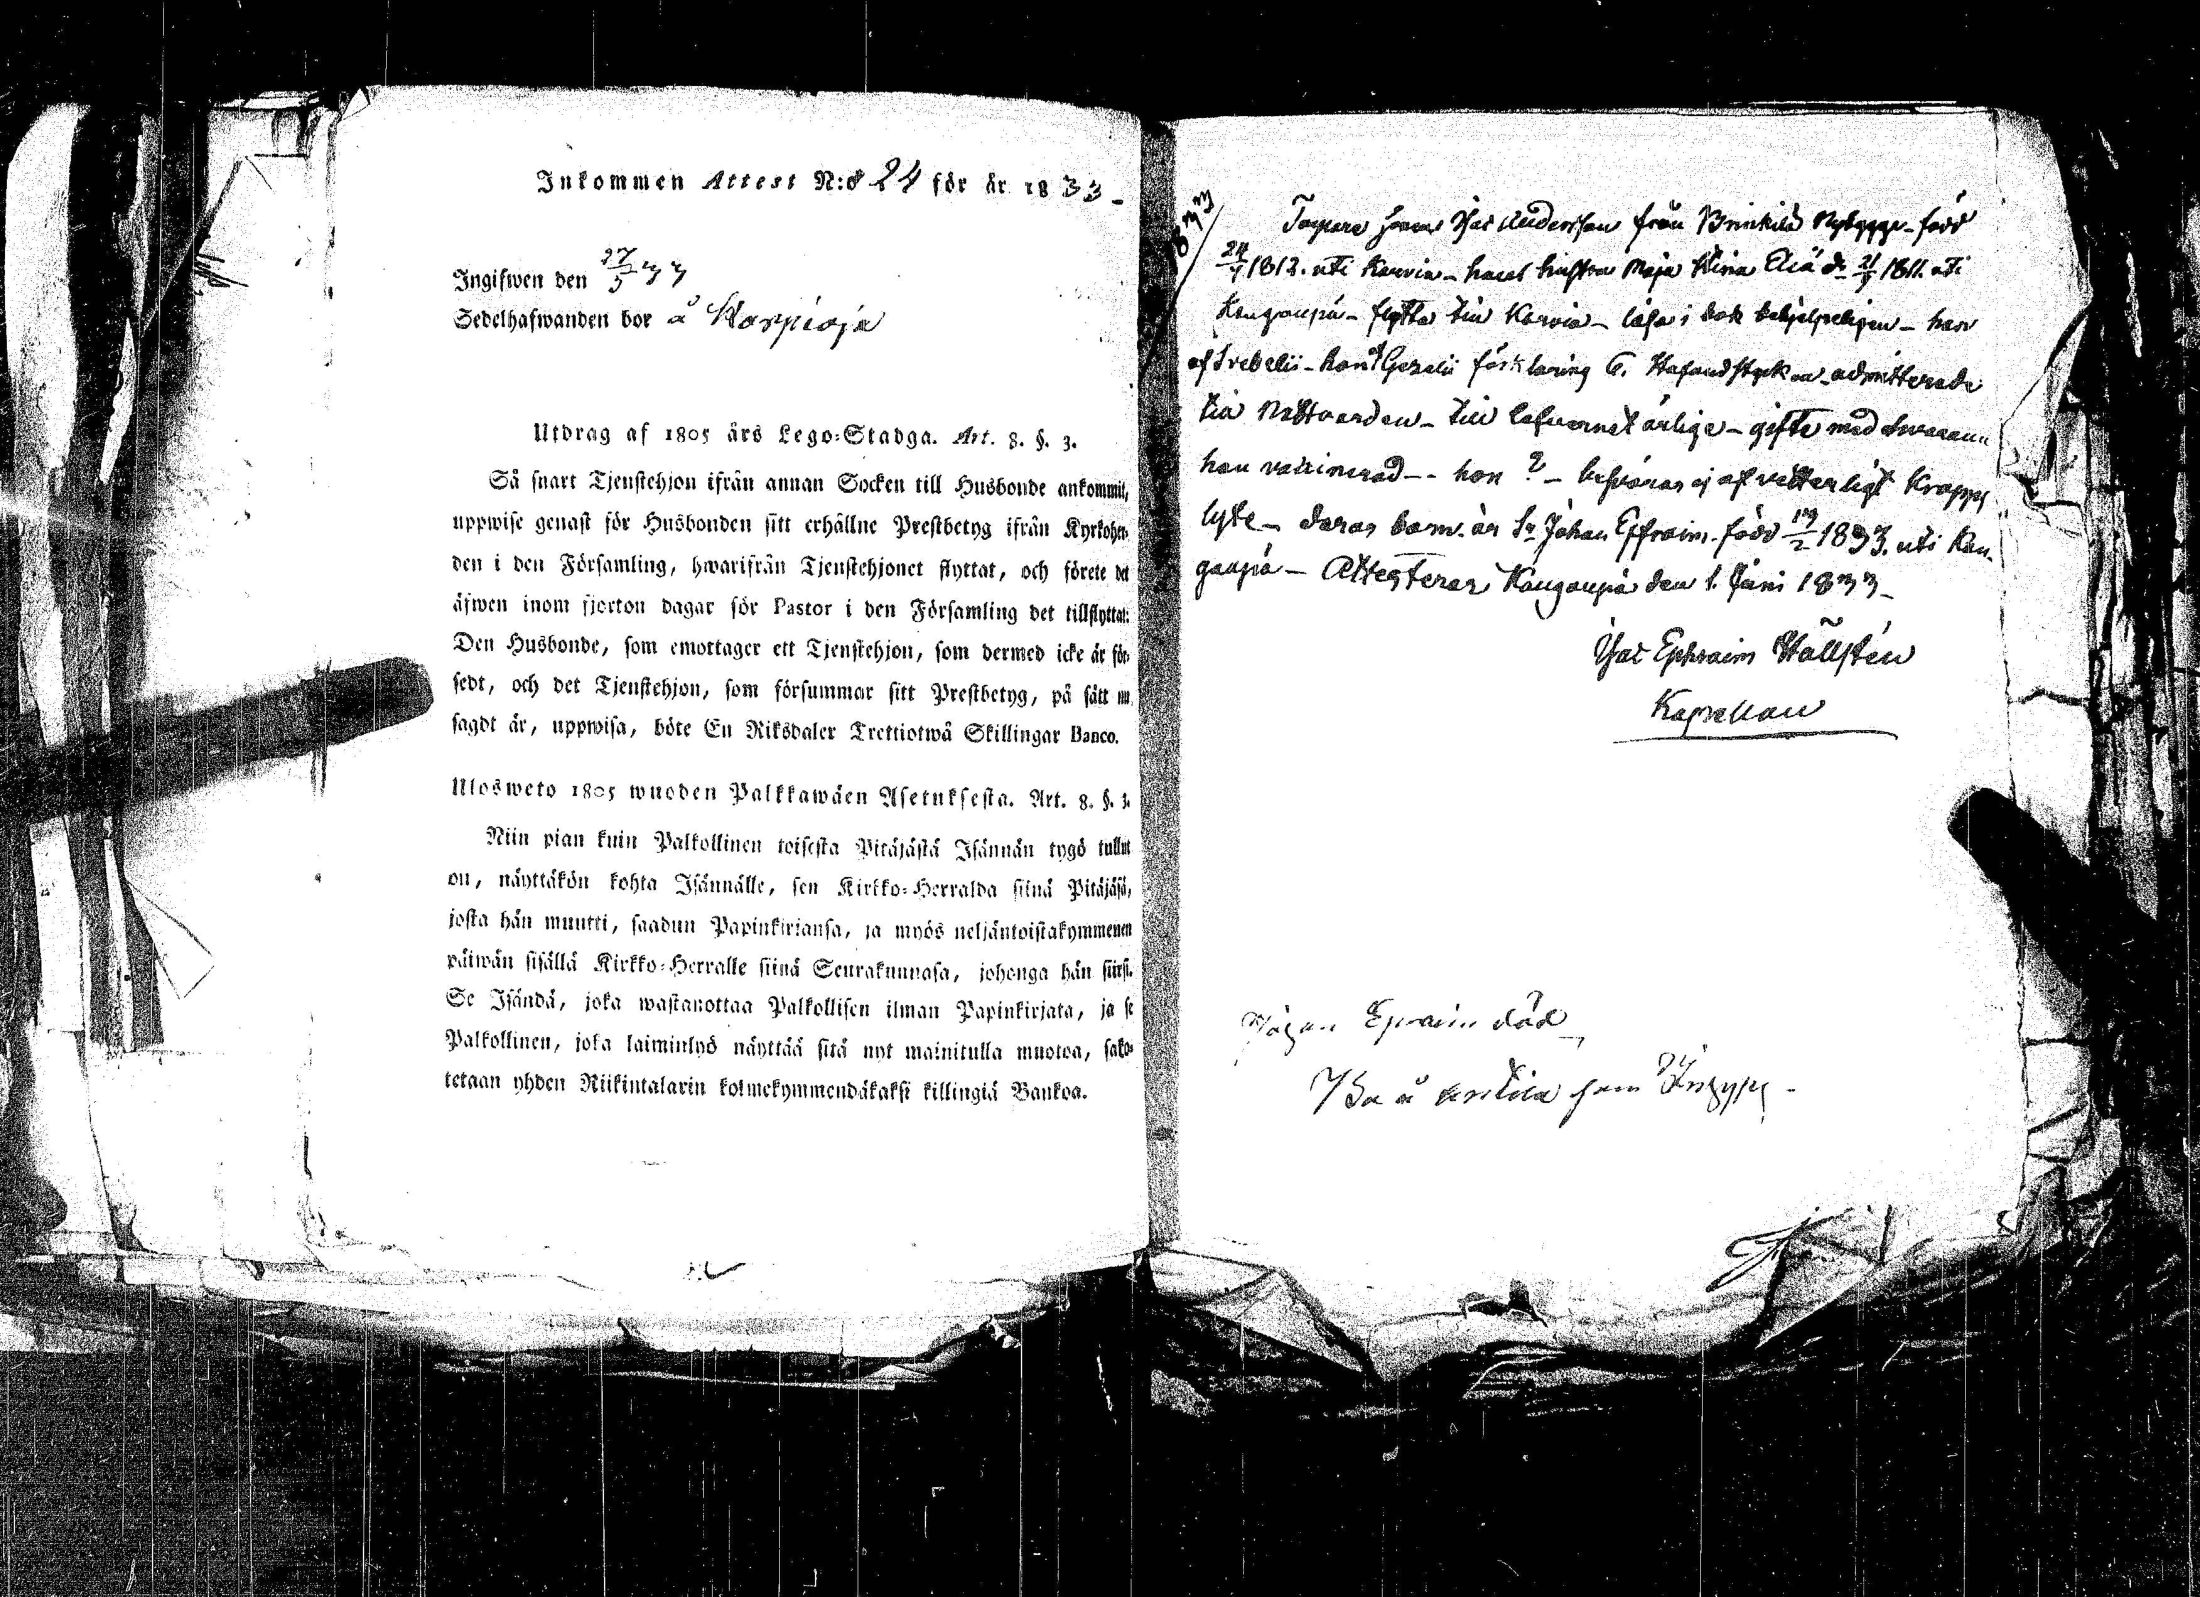 Inkommen Attest N:o 24 för år 1833_
Ingifwen den 27/5 33
Sedelhafwanden bor å Karpioja
Utdrag af 1805 års Lego-Stadga. Art. 8. §. 3.
Så snart Tjenstehjon ifrån annan Socken till Husbonde ankommit,
uppwise genast för Husbonden sitt erhållne Prestbetyg ifrån Kyrkoher-
den i den Församling, hwarifrån Tjenstehjonet flyttat, och förete det
äfwen inom fjorton dagar för Pastor i den Församling det tillflyttat:
Den Husbonde, som emottager ett Tjenstehjon, som dermed icke är för-
sedt, och det Tjenstehjon, som försummar sitt Prestbetyg, på sätt nu
sagdt är, uppwisa, böte En Riksdaler Trettiotwå Skillingar Banco.
Ulosweto 1805 wuoden Palkkawäen Asetuksesta. Art. 8. §. 3.
Niin pian kuin Palkollinen toisesta Pitäjästä Isännän tygö tullut
on, näyttäkön kohta Isännälle, sen Kirkko-Herralda siinä Pitäjäsä,
josta hän muutti, saadun Papinkirjansa, ja myös neljäntoistakymmenen
päiwän sisällä Kirkko-Herralle siinä Seurakunnasa, johonga hän siirsi.
Se Isändä, joka wastanottaa Palkollisen ilman Papinkirjata, ja se
Palkollinen, joka laiminlyö näyttää sitä nyt mainitulla muotoa, sako-
tetaan yhden Riikintalarin kolmekymmendäkaksi killingiä Bankoa.
1833
Isac Andersson från Brinkilä Nybygge_ född
24/1 1812. uti Karvia_ hans hustru Maja Stina Eliæ dr 21/1 1811. uti
Kangaupä_ flytta till Karvia_ läsa i bok behjelpeligen_ han
af Svebelii_ hon af Gezelii förklaring 6. Hufvudstycken_ admitterade
till Nattvarden_ till lefvernet ärlige_ gifte med hvarann
han vaccinerad_ hon ?_ besväras ej af vetterligt kropps
lyte_ deras barn är Sn Johan Effraim. född 13/2 1833. uti Kan-
gaupä_ Attesteras Kangaupä den 1. Juni 1833_
Isac Ephraim Hällstén
Kapellan
Johan Epraim död
Bo å som